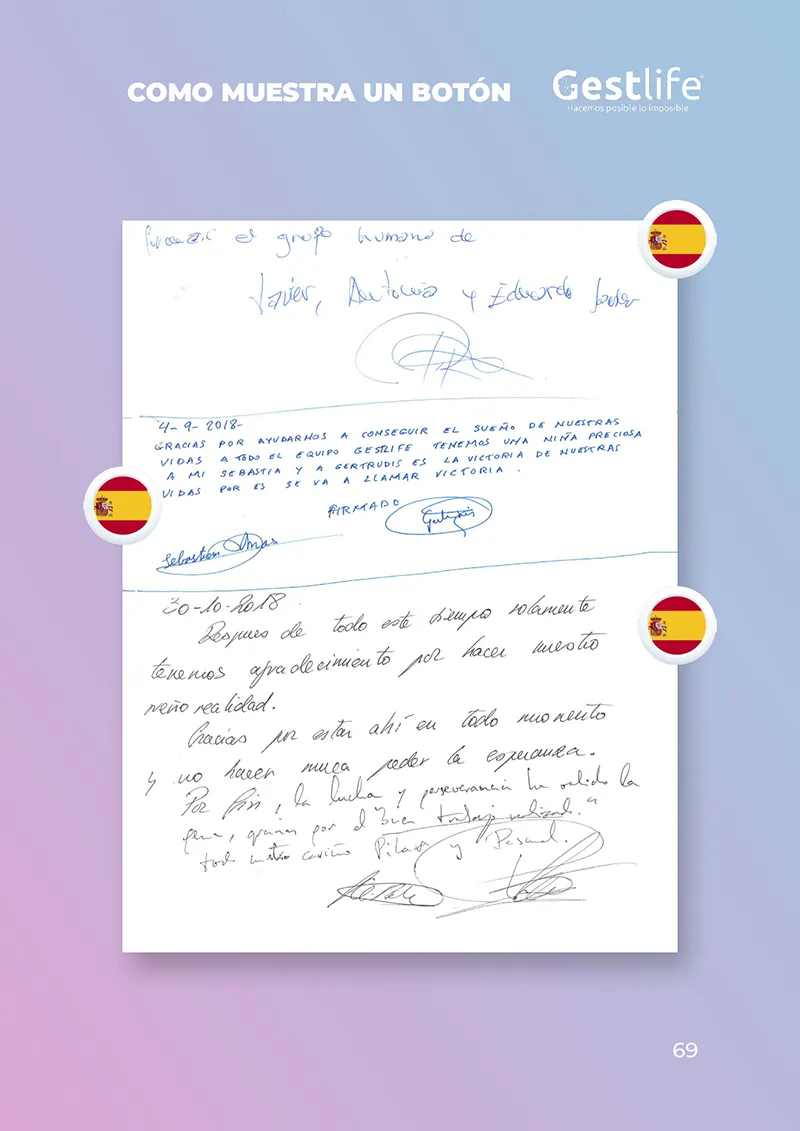 COMO MUESTRA UN BOTÓN
Gestlife
Hacemos posible lo imposible
el grupo humano de
Javier, Antonio y Eduardo
4-9-2018-
GRACIAS POR AYUDARNOS A CONSEGUIR EL SUEÑO DE NUESTRAS
VIDAS A TODO EL EQUIPO GESTLIFE TENEMOS UNA NIÑA PRECIOSA
A MI SEBASTIA Y A GERTRUDIS ES LA VICTORIA DE NUESTRAS
VIDAS POR ES SE VA A LLAMAR VICTORIA.
FIRMADO
Sebastian
30-10-2018.
Despues de todo este tiempo solamente
tenemos agradecimiento por hacer nuestro
sueño realidad.
Gracias por estar ahí en todo momento
y no hacer nunca perder la esperanza.
Por fin, la lucha y perseverancia ha valido la
pena, gracias por el "buen trabajo realizado."
todo nuestro cariño Pilar y Pascual.
69